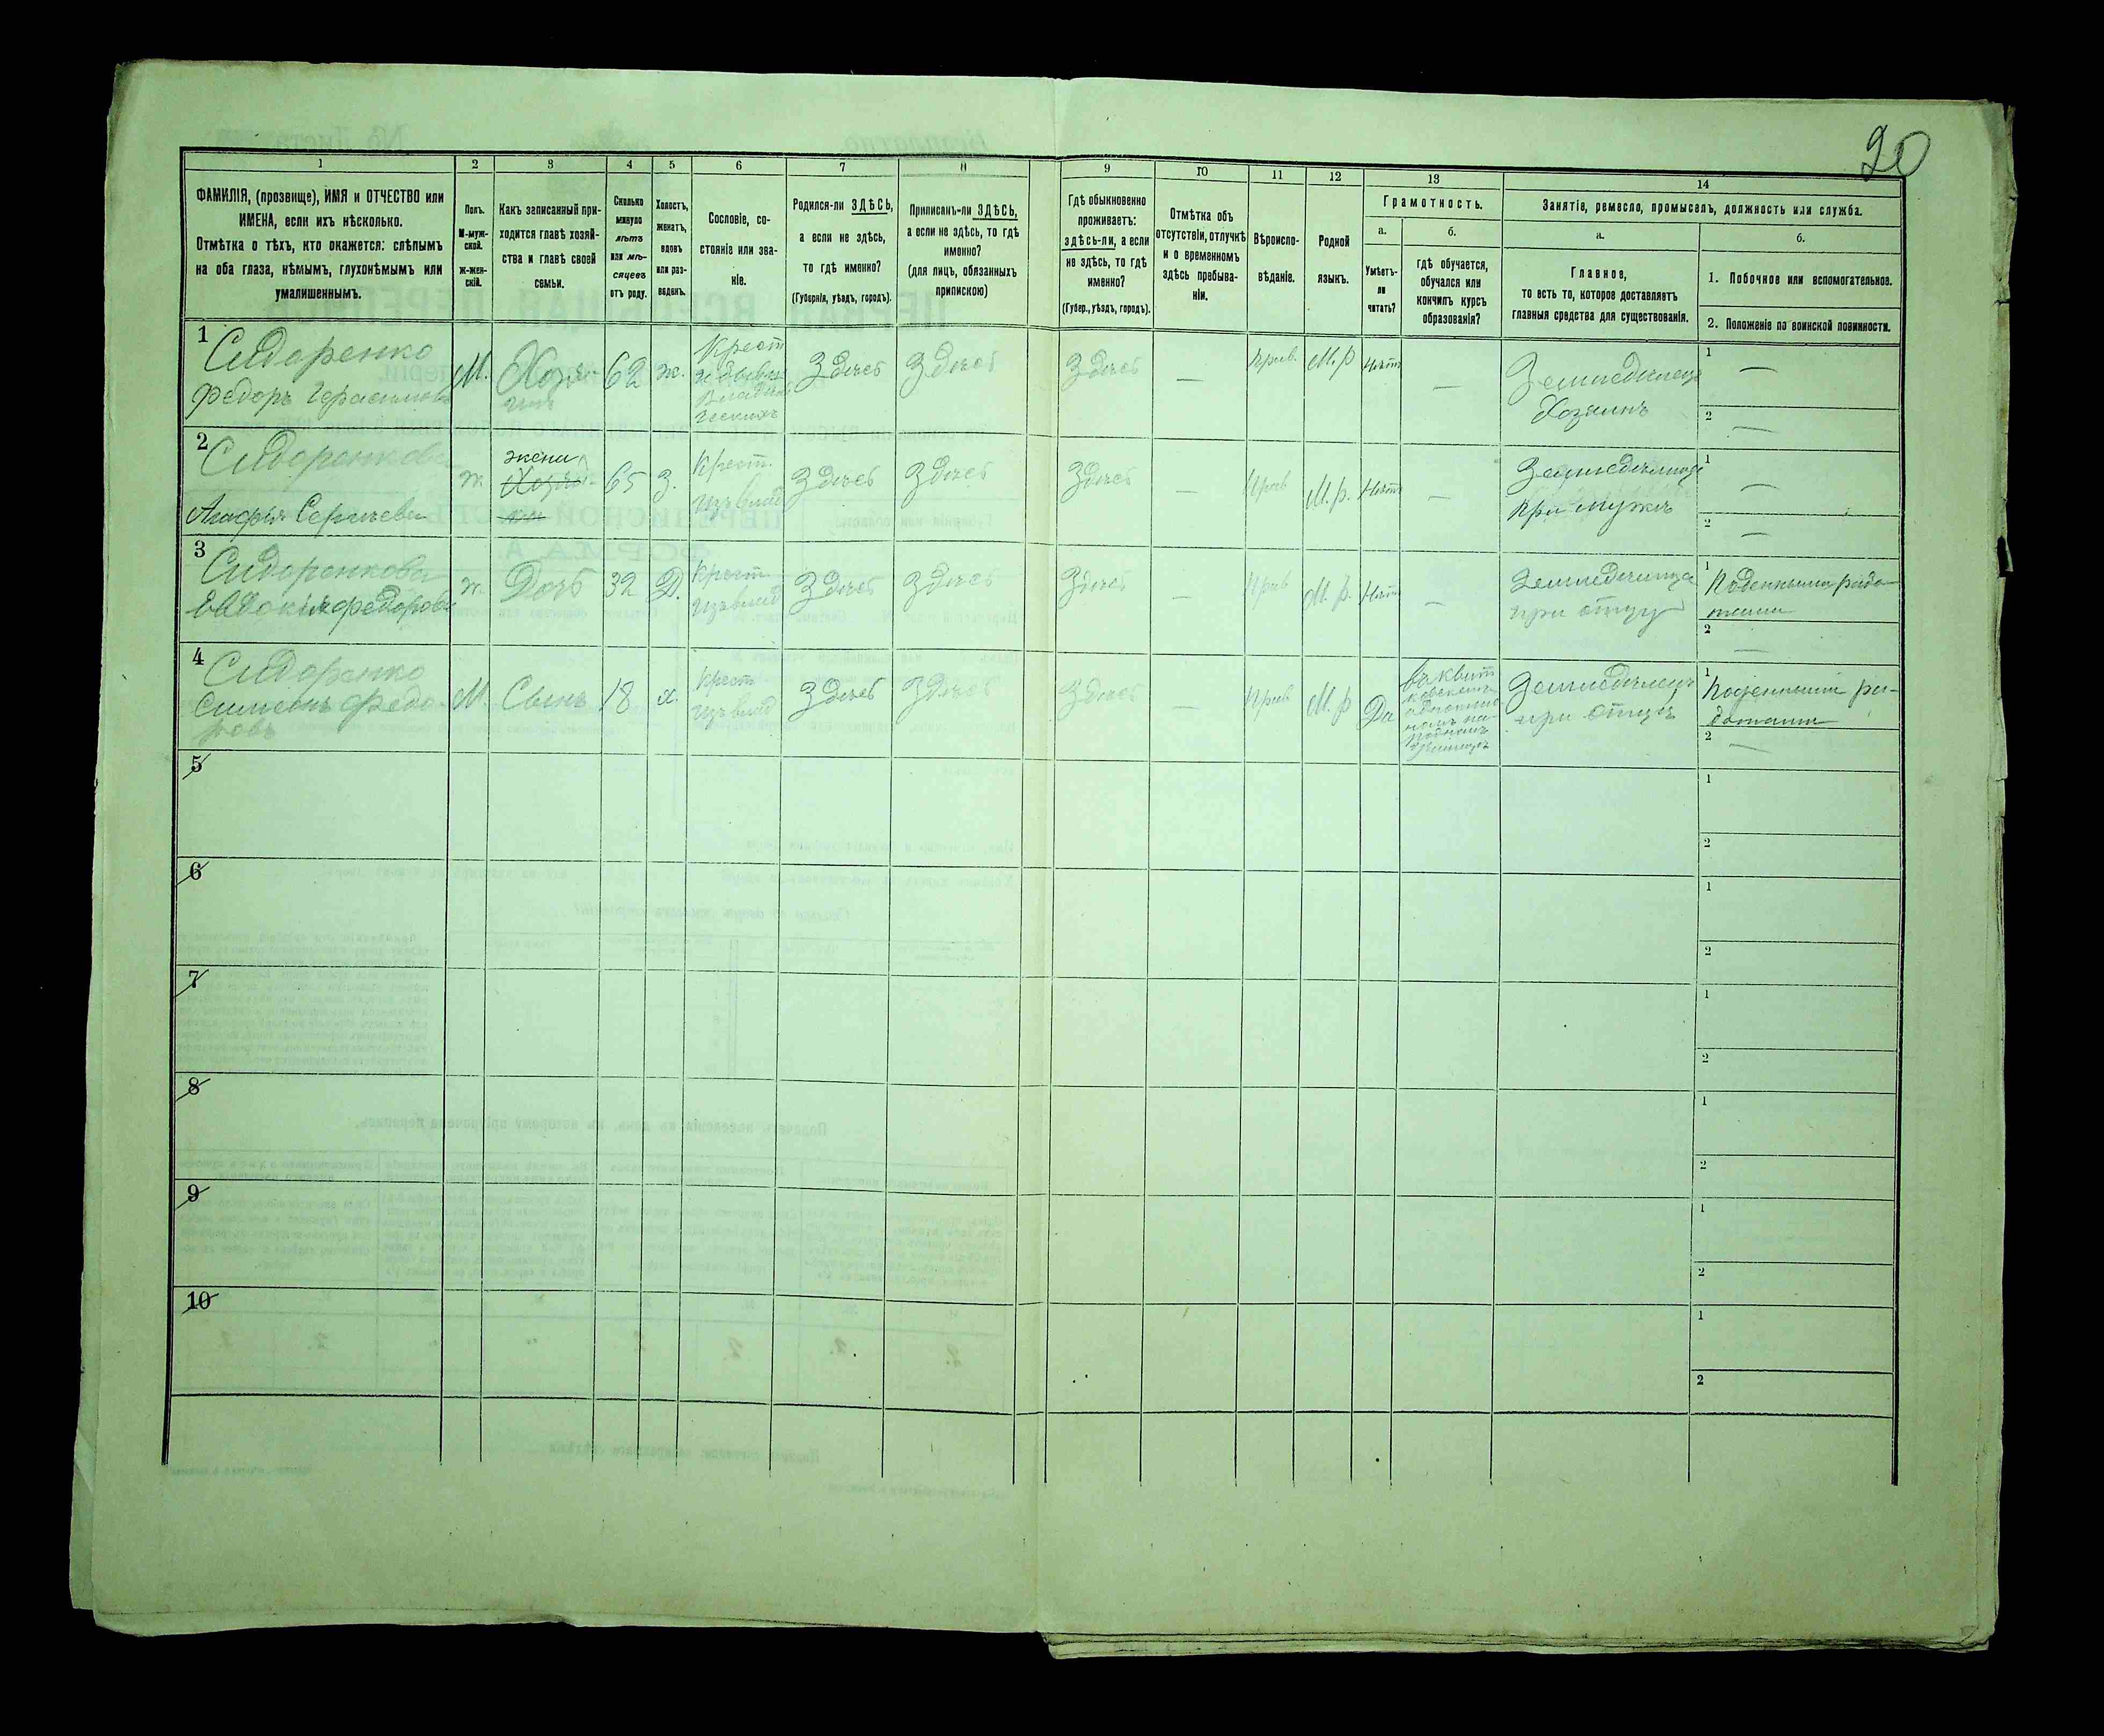 20
1
2
3
4
5
6
7
8
9
10
11
12
13
14
ФАМИЛІЯ, (прозвище), ИМЯ и ОТЧЕСТВО или
ИМЕНА, если ихъ нѣсколько.
Отмѣтка о тѣхъ, кто окажется: слѣпымъ
на оба глаза, нѣмымъ, глухонѣмымъ или
умалишеннымъ.
Полъ.
М-муж-
ской.
ж-жен-
скій.
Какъ записанный при-
ходится главѣ хозяй-
ства и главѣ своей
семьи.
Сколько
минуло
лѣтъ
или мѣ-
сяцевъ
отъ роду.
Холостъ,
женатъ,
вдовъ
или раз-
веденъ.
Сословіе, со-
стояніе или зва-
ніе.
Родился-ли ЗДѢСЬ,
а если не здѣсь,
то гдѣ именно?
(Губернія, уѣздъ, городъ).
Приписанъ-ли ЗДѢСЬ,
а если не здѣсь, то гдѣ
именно?
(для лицъ, обязанныхъ
припискою)
Гдѣ обыкновенно
проживаетъ:
здѣсь-ли, а если
не здѣсь, то гдѣ
именно?
(Губер., уѣздъ, городъ).
Отмѣтка объ
отсутствіи, отлучкѣ
и о временномъ
здѣсь пребыва-
ніи.
Вѣроиспо-
вѣданіе.
Родной
языкъ.
Грамотность.
а.
Умѣетъ-
ли
читать?
б.
гдѣ обучается,
обучался или
кончилъ курсъ
образованія?
Занятіе, ремесло, промыселъ, должность или служба.
а.
Главное,
то есть то, которое доставляетъ
главныя средства для существованія.
б.
1. Побочное или вспомогательное.
2. Положеніе по воинской повинности.
1
Сидоренко
Федоръ Герасимовъ
М.
Хозя-
инъ
62
ж.
Крест
Здѣсь
Здѣсь
Здѣсь
—
Прав.
М.р
Нѣтъ
—
Земледѣлецъ
Хозяинъ
1
—
2
—
2
Сидоренкова
Агафья Сергѣева
ж.
жена
Хозя-
инъ
65
З.
Крест.
изъ влад
Здѣсь
Здѣсь
Здѣсь
—
Прав
М.р.
Нѣтъ
—
Земледѣлица
при мужѣ
1
—
2
—
3
Сидоренкова
Евдокія Федорова
ж.
Дочь
32
Д.
Крест
изъ влад
Здѣсь
Здѣсь
Здѣсь
—
Прав
М.р.
Нѣтъ
—
Земледѣлица
при отцу
1
2
—
4
Сидоренко
Симеонъ Федо-
ровъ
М.
Сынъ
18
х.
Крест
изъ влад
Здѣсь
Здѣсь
Здѣсь
—
Прав
М.р
Да
Земледѣлецъ
при отцѣ
1
2
—
5
1
2
6
1
2
7
1
2
8
1
2
9
1
2
10
1
2